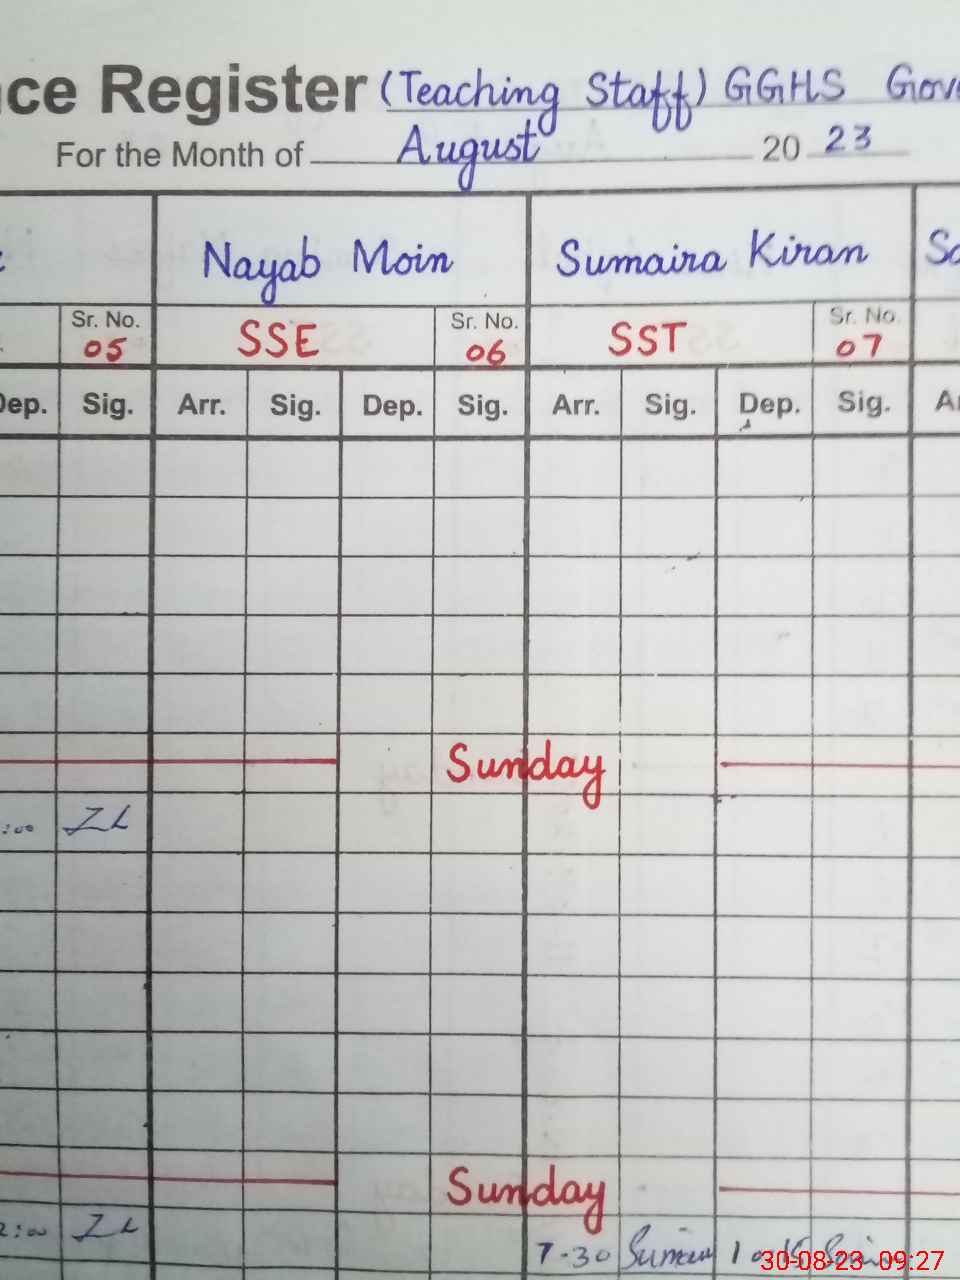 ce Register (Teaching Staff) GGHS Gove
For the Month of August 20 23
Nayab Moin Sumaira Kiran Sa
Sr. No. 05 SSE Sr. No. 06 SST Sr. No. 07
Dep. Sig. Arr. Sig. Dep. Sig. Arr. Sig. Dep. Sig. Ar
Sunday
:00 ZL
Sunday
2:00 ZL
7-30
30-08-23 09:27